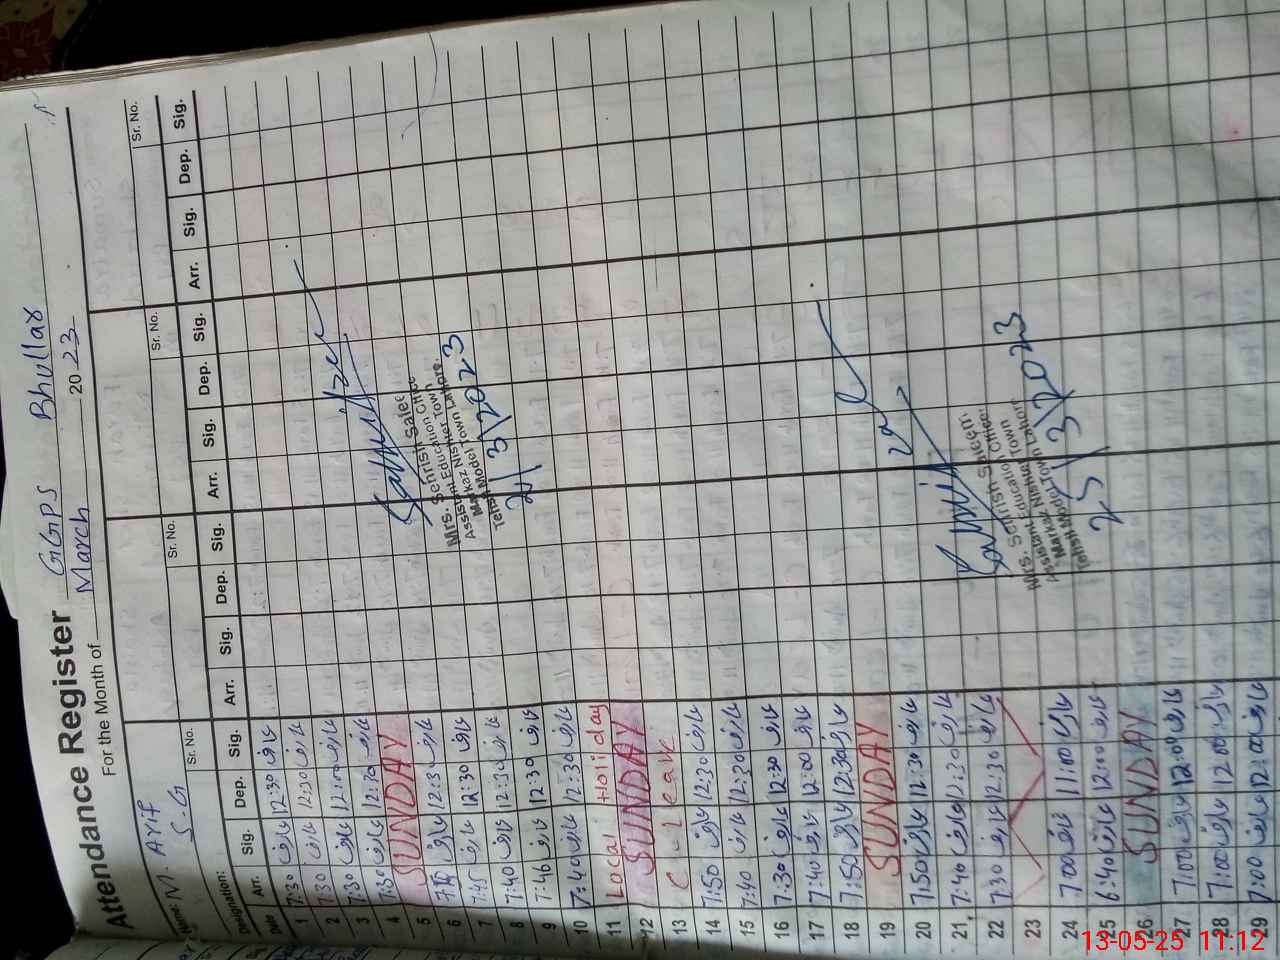 Attendance Register GGPS Bhullar
For the Month of March 2023
Name: M. Arif
S-G
Sr. No. Sr. No. Sr. No. Sr. No.
Designation:
Date Arr. Sig. Dep. Sig. Arr. Sig. Dep. Sig. Arr. Sig. Dep. Sig. Arr. Sig. Dep. Sig.
1 7:30 عارف 12:30 عارف
2 7:30 عارف 12:30 عارف
3 7:30 عارف 12:00 عارف
4 7:30 عارف 12:30 عارف
5 SUNDAY
6 عارف 12:3 عارف
7 7:45 عارف 12:30 عارف
8 7:40 عارف 12:30 عارف
9 7:46 عارف 12:30 عارف
10 7:40 عارف 12:30 عارف
11 Local Holiday
12 SUNDAY
13 leave
14 7:50 عارف 12:30 عارف
15 7:40 عارف 12:30 عارف
16 7:30 عارف 12:30 عارف
17 7:40 عارف 12:00 عارف
18 7:50 عارف 12:30 عارف
19 SUNDAY
20 7:50 عارف 12:30 عارف
21 7:40 عارف 12:30 عارف
22 7:30 عارف 12:30 عارف
23
24 7:00 عارف 11:00 عارف
25 6:40 عارف 12:00 عارف
26 SUNDAY
27 7:00 عارف 12:00 عارف
28 7:00 عارف 12:00 عارف
29 7:00 عارف 12:00 عارف
Mrs. Sehrish Saleem
Assistant Education Officer
Markaz Nishter Town
Tehsil Model Town Lahore.
2/3/2023
Mrs. Sehrish Saleem
Assistant Education Officer.
Markaz Nishter Town
Tehsil Model Town Lahore
25/3/2023
13-05-25 11:12